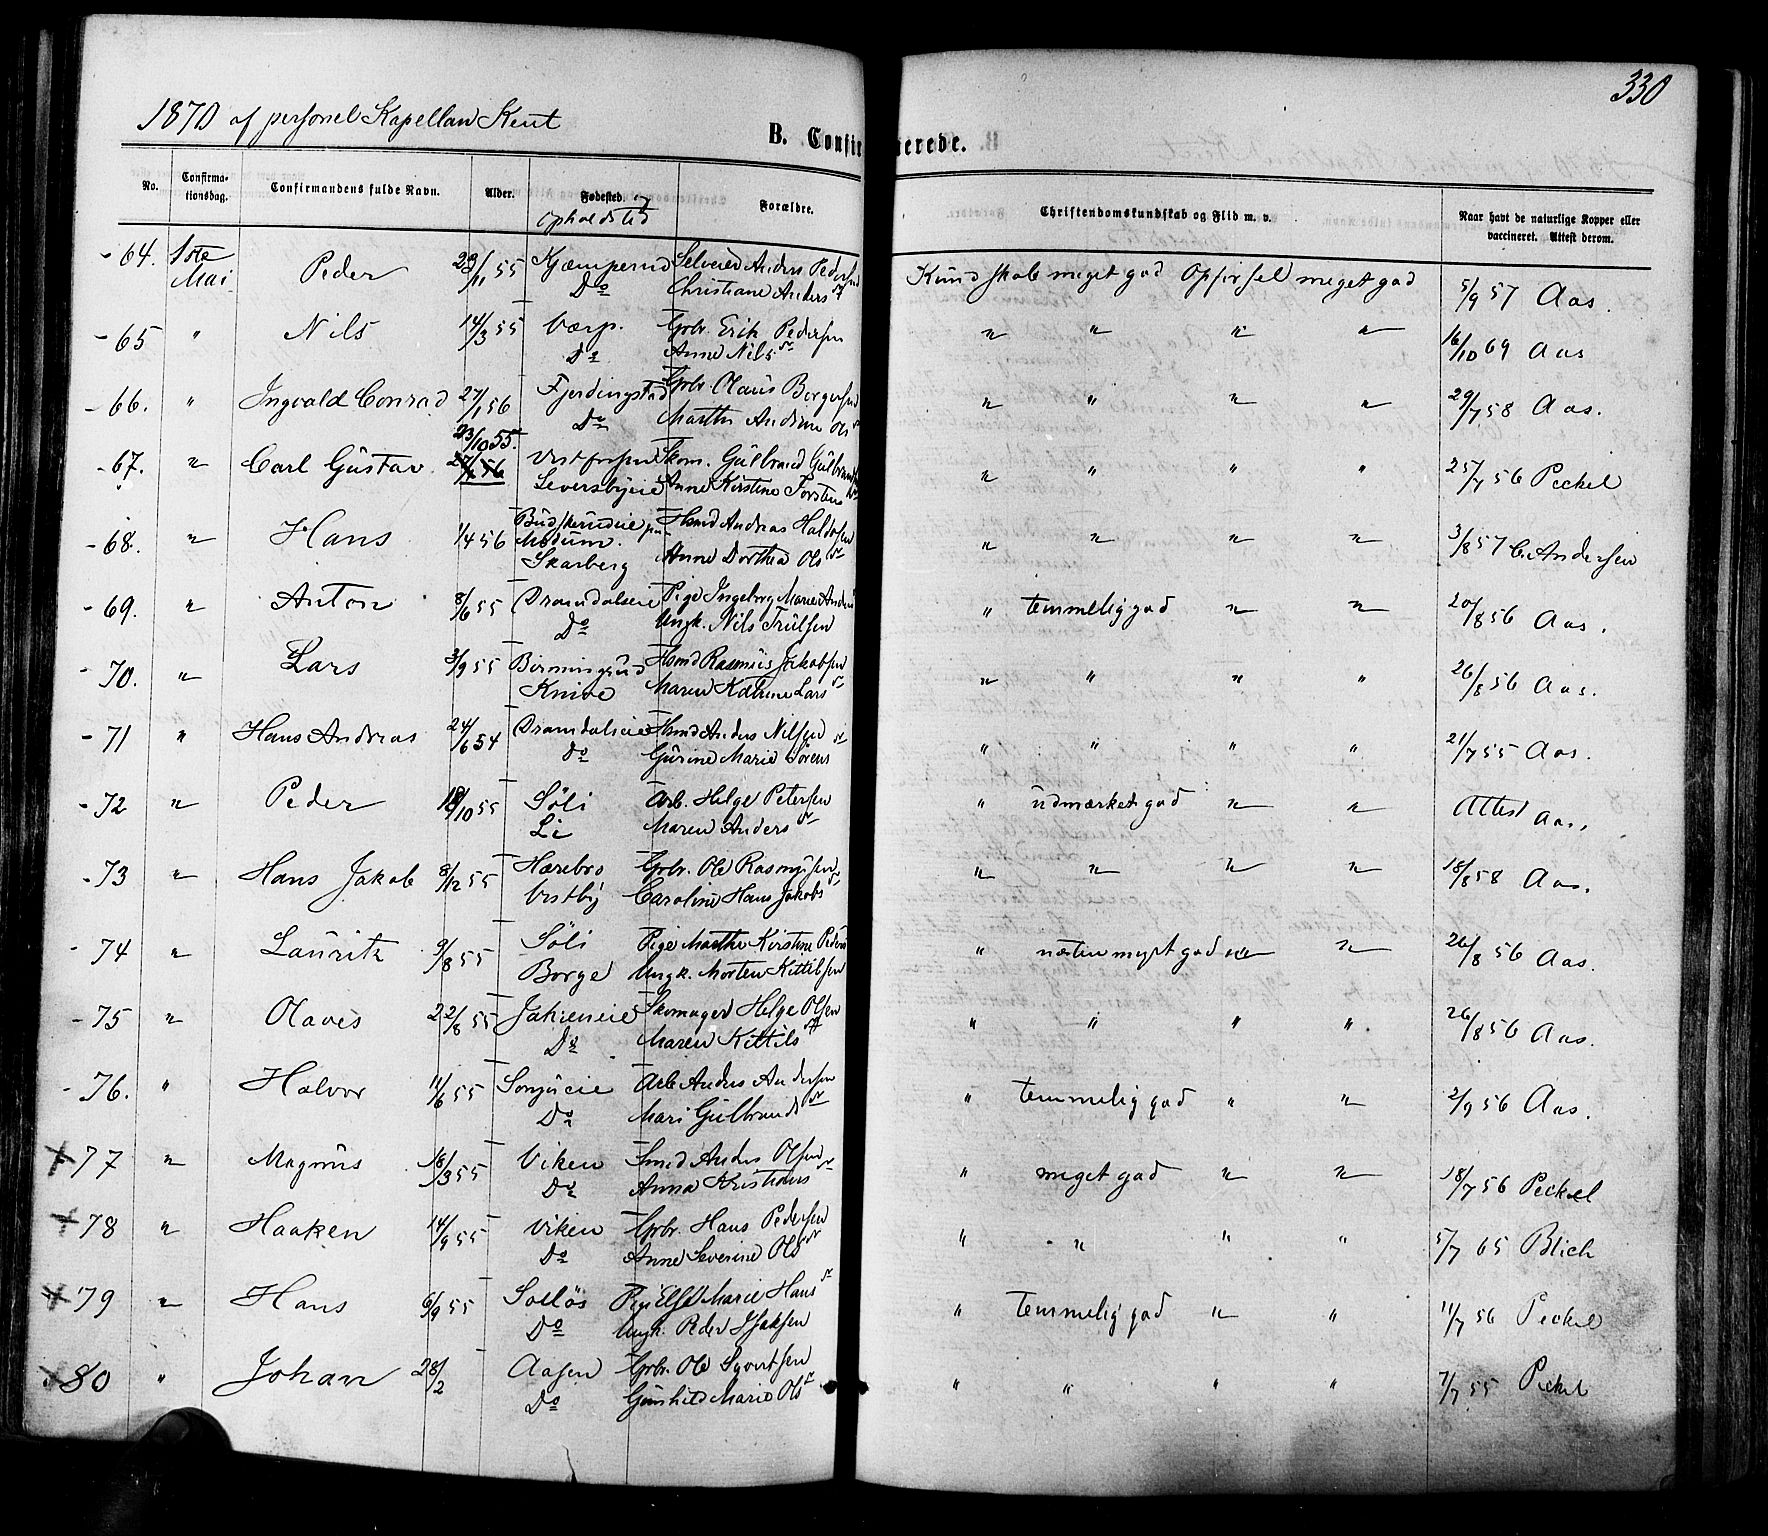 330
1870 af personel Kapellan Kent
B. Confirmerede.
No. Confirma-tionsdag. Confirmandens fulde Navn. Alder. Fødested. Forældre. Christendomskundskab og Flid m. v. Naar havt de naturlige Kopper eller
vaccineret. Attest derom.
Opholdsted
- 64. 1ste Peder 29/11 55 Kjæmperud Selveier Anders Pedersen Kundskab meget god Opførsel meget god 5/9 57 Aas.
Mai Do Christiane Anders dr
- 65 " Nils 14/3 55 Værp. Grbr. Erik Pedersen " " " " 16/10 69 Aas
Do Anne Nils dr
- 66. " Ingvald Conrad 27/1 56 Fjerdingstad Grbr. Olaus Borgersen " " " " 29/7 58 Aas.
Do Marthe Andrine Ols
23/10 55.
- 67. " Carl Gustav 27/1 56 Vestfossen Skom. Gulbrand " " " " 25/7 56 Peckel
Leversbyeie Anne Kirstine Torstens
- 68. " Hans 1/4 56 Modum. Hsmd Andreas " " " " 3/8 57 C. Andersen
Skarberg Anne Dorthea Ols dr
- 69. " Anton 8/6 55 Dramdalseie Pige Ingeborg Marie Anders " temmelig god " " 20/8 56 Aas.
Do Ungk. Nils Trulsen
- 70. " Lars 3/9 55 Hsmd Rasmus Jakobsen " " " " 26/8 56 Aas.
Knive Maren Katrine Lars dr
- 71 " Hans Andreas 24/6 54 Dramdalseie Hsmd Anders Nilsen " " " " 21/7 55 Aas.
Do Gurine Marie Sørens dr
- 72 " Peder 18/10 55 Søli Arb. Helge Petersen " udmærket god " " Attest Aas.
Li Maren Anders dr
- 73 " Hans Jakob 8/12 55 Hærebro Grbr. Ole Rasmussen " " " " 18/8 58 Aas.
Vestby Caroline Hans Jakobs dr
- 74 " Lauritz 9/8 55 Søli Pige Marthe Kirstine Peders " næsten meget god " " 26/8 56 Aas.
Borge Ungk. Morten Kittilsen
- 75 " Olaves 22/8 55 Skomager Helge Olsen " " " " 26/8 56 Aas.
Do Maren Kittils dr
- 76. " Halvor 11/6 55 Arb Anders Andersen " temmelig god " " 2/9 56 Aas.
Do Mari Gulbrands dr
+ 77 " Magnus 16/3 55 Viken Smed Anders Olsen " meget god " " 18/7 56 Peckel
Do Anna Kristians dr
+ 78 " Haaken 14/9 55 Viken Grbr. Hans Pedersen " " " " 5/7 65 Blich
Do Anne Severine Ols dr
+ 79 " Hans 6/9 55 Solløs Pige Else Marie Hans dr " temmelig god " " 11/7 56 Peckel
Do Ungk. Peder Isaksen
+ 80 " Johan 28/2 Aasen Grbr. Ole Syvertsen " " " " 7/7 55 Peckel
Do Gunhild Marie Ols dr